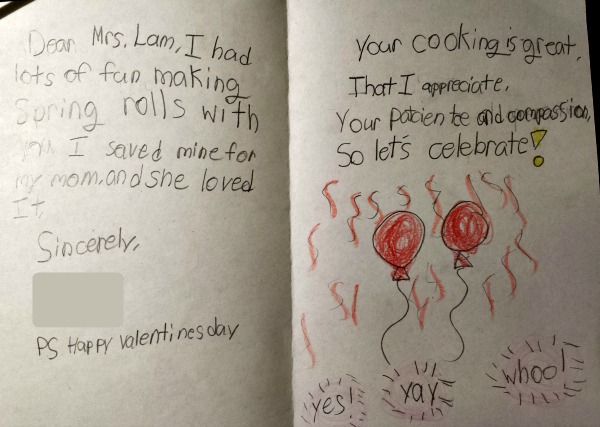 Dear Mrs. Lam, I had
lots of fun making
Spring rolls with
you I saved mine for
my mom, and she loved
It.
Sincerely,
PS Happy Valentines day
Your cooking is great,
That I appreciate,
Your patciente and compassion,
So let's celebrate!
yes!
yay
whoo!